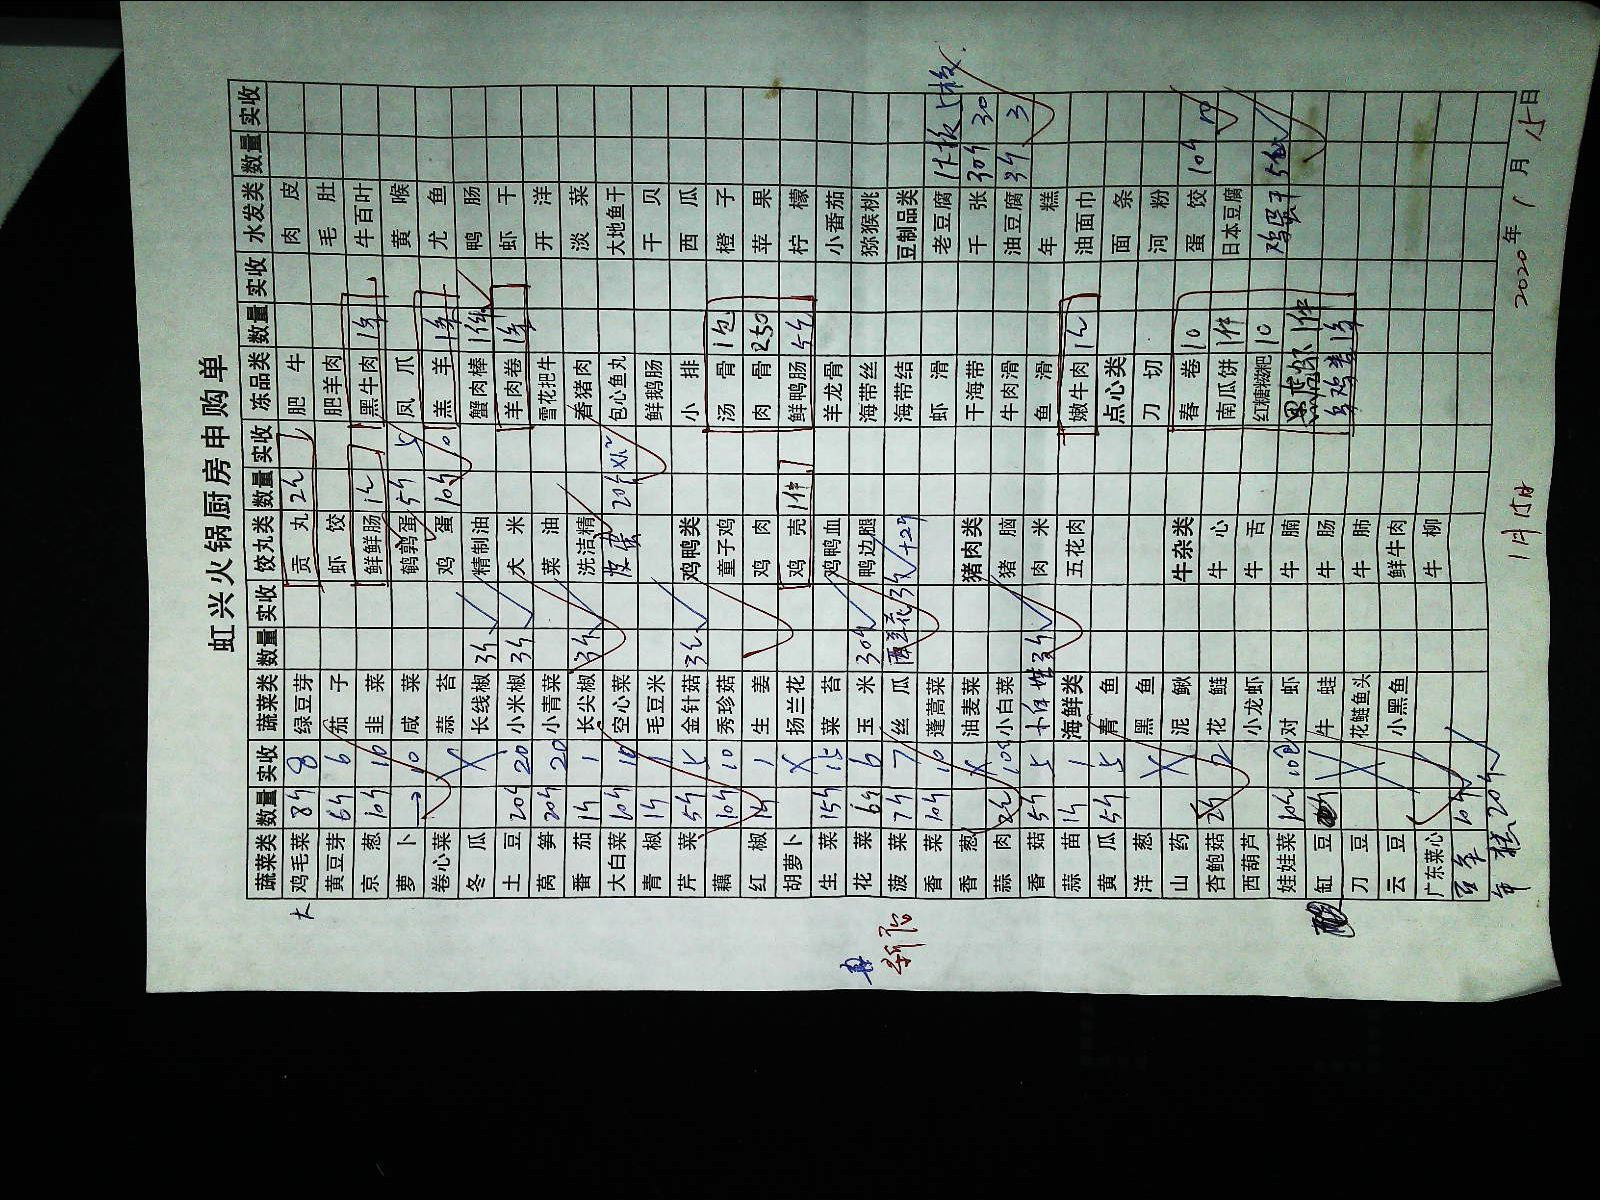 虹兴火锅厨房申购单
蔬菜类 数量 实收 蔬菜类 数量 实收 饺丸类 数量 实收 冻品类 数量 实收 水发类 数量 实收
大 鸡毛菜 8斤 8 绿豆芽 贡丸 2包 肥牛 肉皮
黄豆芽 6斤 6 茄子 虾饺 肥羊肉 毛肚
京葱 10斤 10 韭菜 鲜鲜肠 1包 黑牛肉 1条 牛百叶
萝卜 10 咸菜 鹌鹑蛋 5斤 5 凤爪 黄喉
卷心菜 蒜苔 鸡蛋 10斤 10 羔羊 1条 尤鱼
冬瓜 长线椒 3斤 精制油 蟹肉棒 1件 鸭肠
土豆 20斤 20 小米椒 3斤 大米 羊肉卷 1条 虾干
莴笋 20斤 20 小青菜 菜油 雪花把牛 开洋
番茄 1斤 1 长尖椒 3斤 洗洁精 香猪肉 淡菜
大白菜 10斤 10 空心菜 皮蛋 20斤 包心鱼丸 大地鱼干
青椒 1斤 1 毛豆米 鲜鹅肠 干贝
芹菜 5斤 5 金针菇 3包 鸡鸭类 小排 西瓜
藕 10斤 10 秀珍菇 童子鸡 汤骨 1包 橙子
红椒 1斤 1 生姜 鸡肉 肉骨 250 苹果
胡萝卜 扬兰花 鸡壳 1件 鲜鸭肠 5包 柠檬
生菜 15斤 15 菜苔 鸡鸭血 羊龙骨 小番茄
花菜 6斤 6 玉米 30斤 鸭边腿 海带丝 猕猴桃
菠菜 7斤 7 丝瓜 西兰花 海带结 豆制品类
香菜 10斤 10 蓬蒿菜 虾滑 老豆腐 1板 1板
香葱 油麦菜 猪肉类 干海带 千张 30斤 30
蒜肉 2包 小白菜 猪脑 牛肉滑 油豆腐 3斤 3
香菇 5斤 5 肉米 鱼滑 年糕
蒜苗 1斤 1 海鲜类 五花肉 嫩牛肉 1包 油面巾
黄瓜 5斤 5 青鱼 点心类 面条
洋葱 黑鱼 刀切 河粉
山药 泥鳅 牛杂类 春卷 10 蛋饺 10斤 10
杏鲍菇 2斤 2 花鲢 牛心 南瓜饼 1件 日本豆腐
西葫芦 小龙虾 牛舌 红糖糍粑 10 鸡蛋干
娃娃菜 10包 10包 对虾 牛腩 1件
酸 缸豆 牛蛙 牛肠 乌鸡卷 1条
刀豆 花鲢鱼头 牛肺
云豆 小黑鱼 鲜牛肉
广东菜心 牛柳
百合 10斤
年糕 20斤
1月15日 2020年1月15日